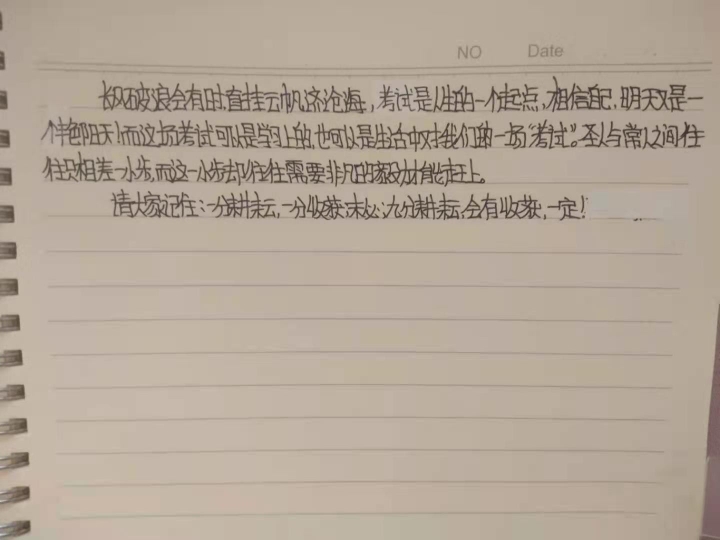 NO Date
长风破浪会有时,直挂云帆济沧海,考试是人生的一个起点,相信自己,明天又是一
个艳阳天!而这场考试可以是学习上的,也可以是生活中对我们的一场“考试”。圣人与常人之间往
往只相差一小步,而这一小步却往往需要非凡的努力才能走上。
请大家记住:一分耕耘,一分收获;未必;九分耕耘,会有收获,一定!